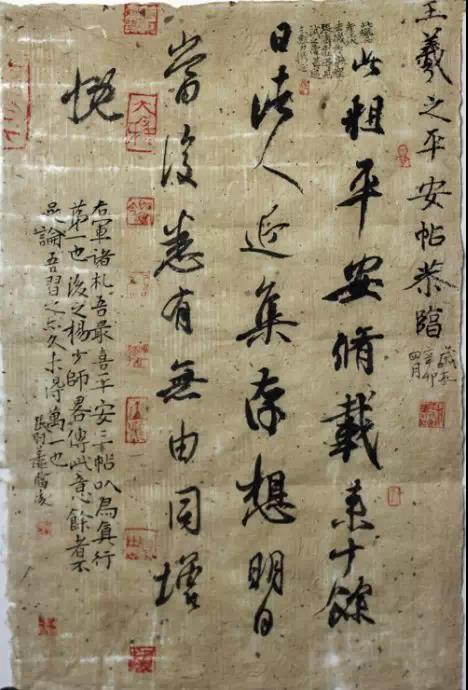 王羲之平安帖恭臨
歲在
辛卯
四月
此粗平安脩載來十餘
日諸人近集存想明日
當復悉有無由同增
慨
右軍諸札吾最喜平安三帖以為真行
第一也後之楊少師畧傳此意餘者不
足論吾習之亦久未得萬一也